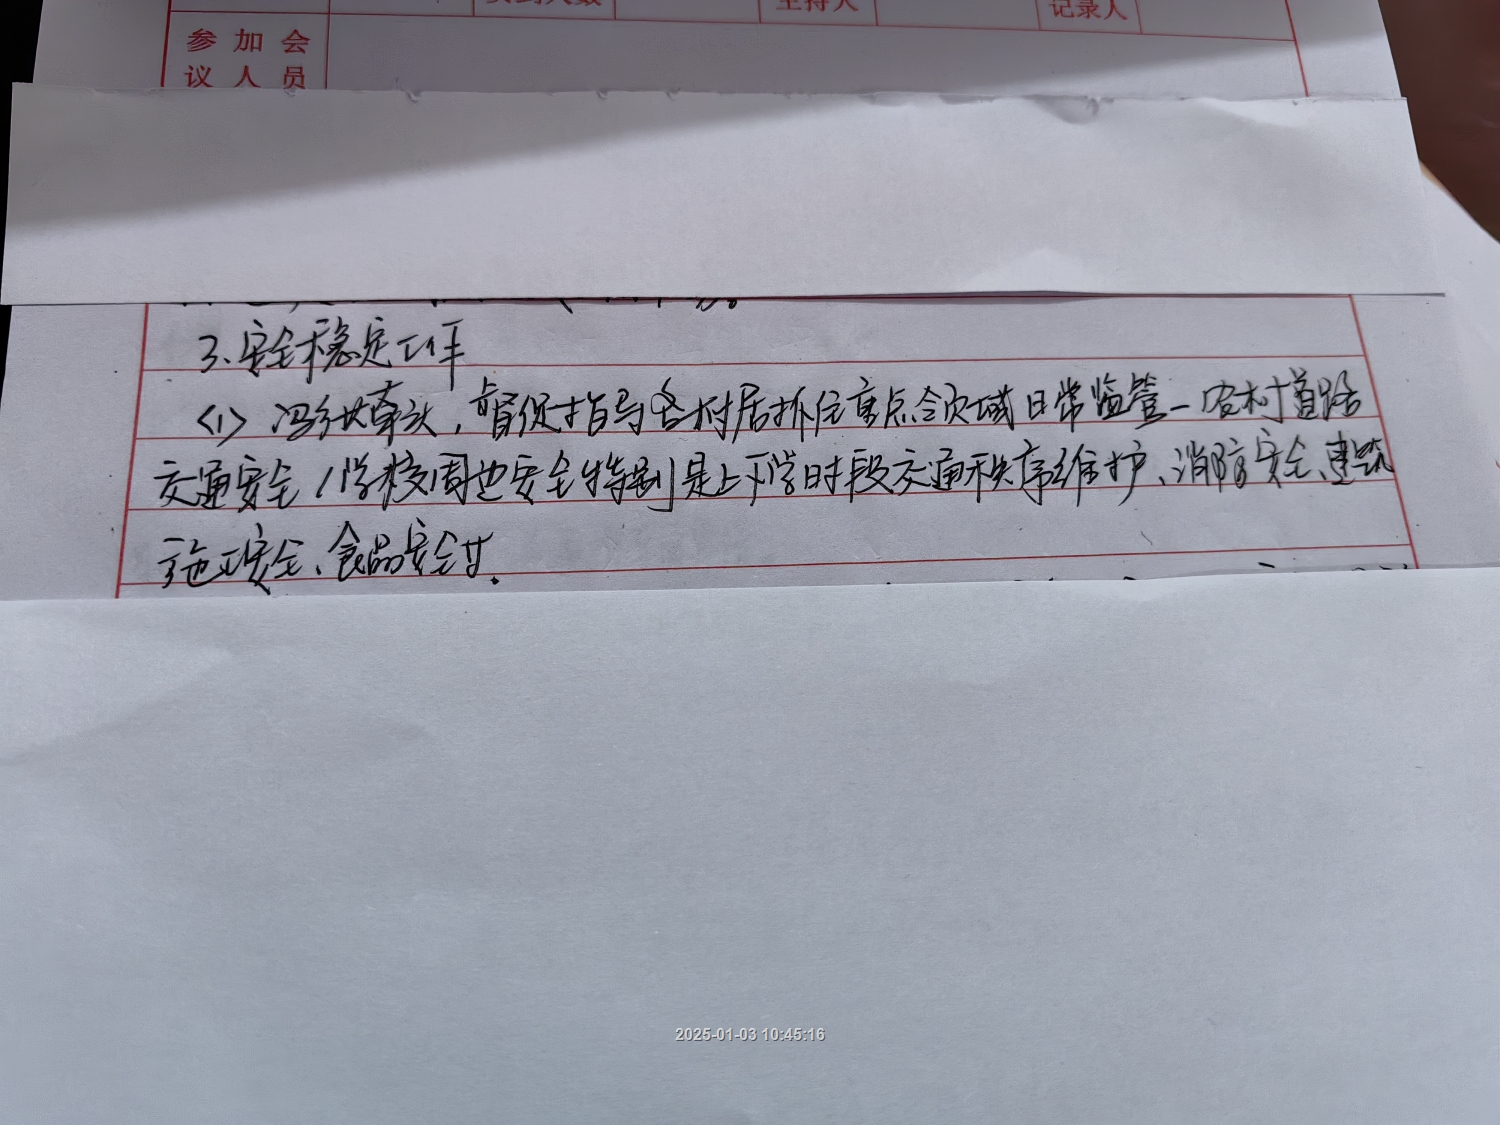 主持人
记录人
参加会
议人员
3、安全稳定工作
<1> 冯牵头,督促指导各村居抓住重点领域日常监管-农村道路
交通安全、学校周边安全特别是上下学时段交通秩序维护、消防安全、建筑
施工安全、食品安全等.
2025-01-03 10:45:16